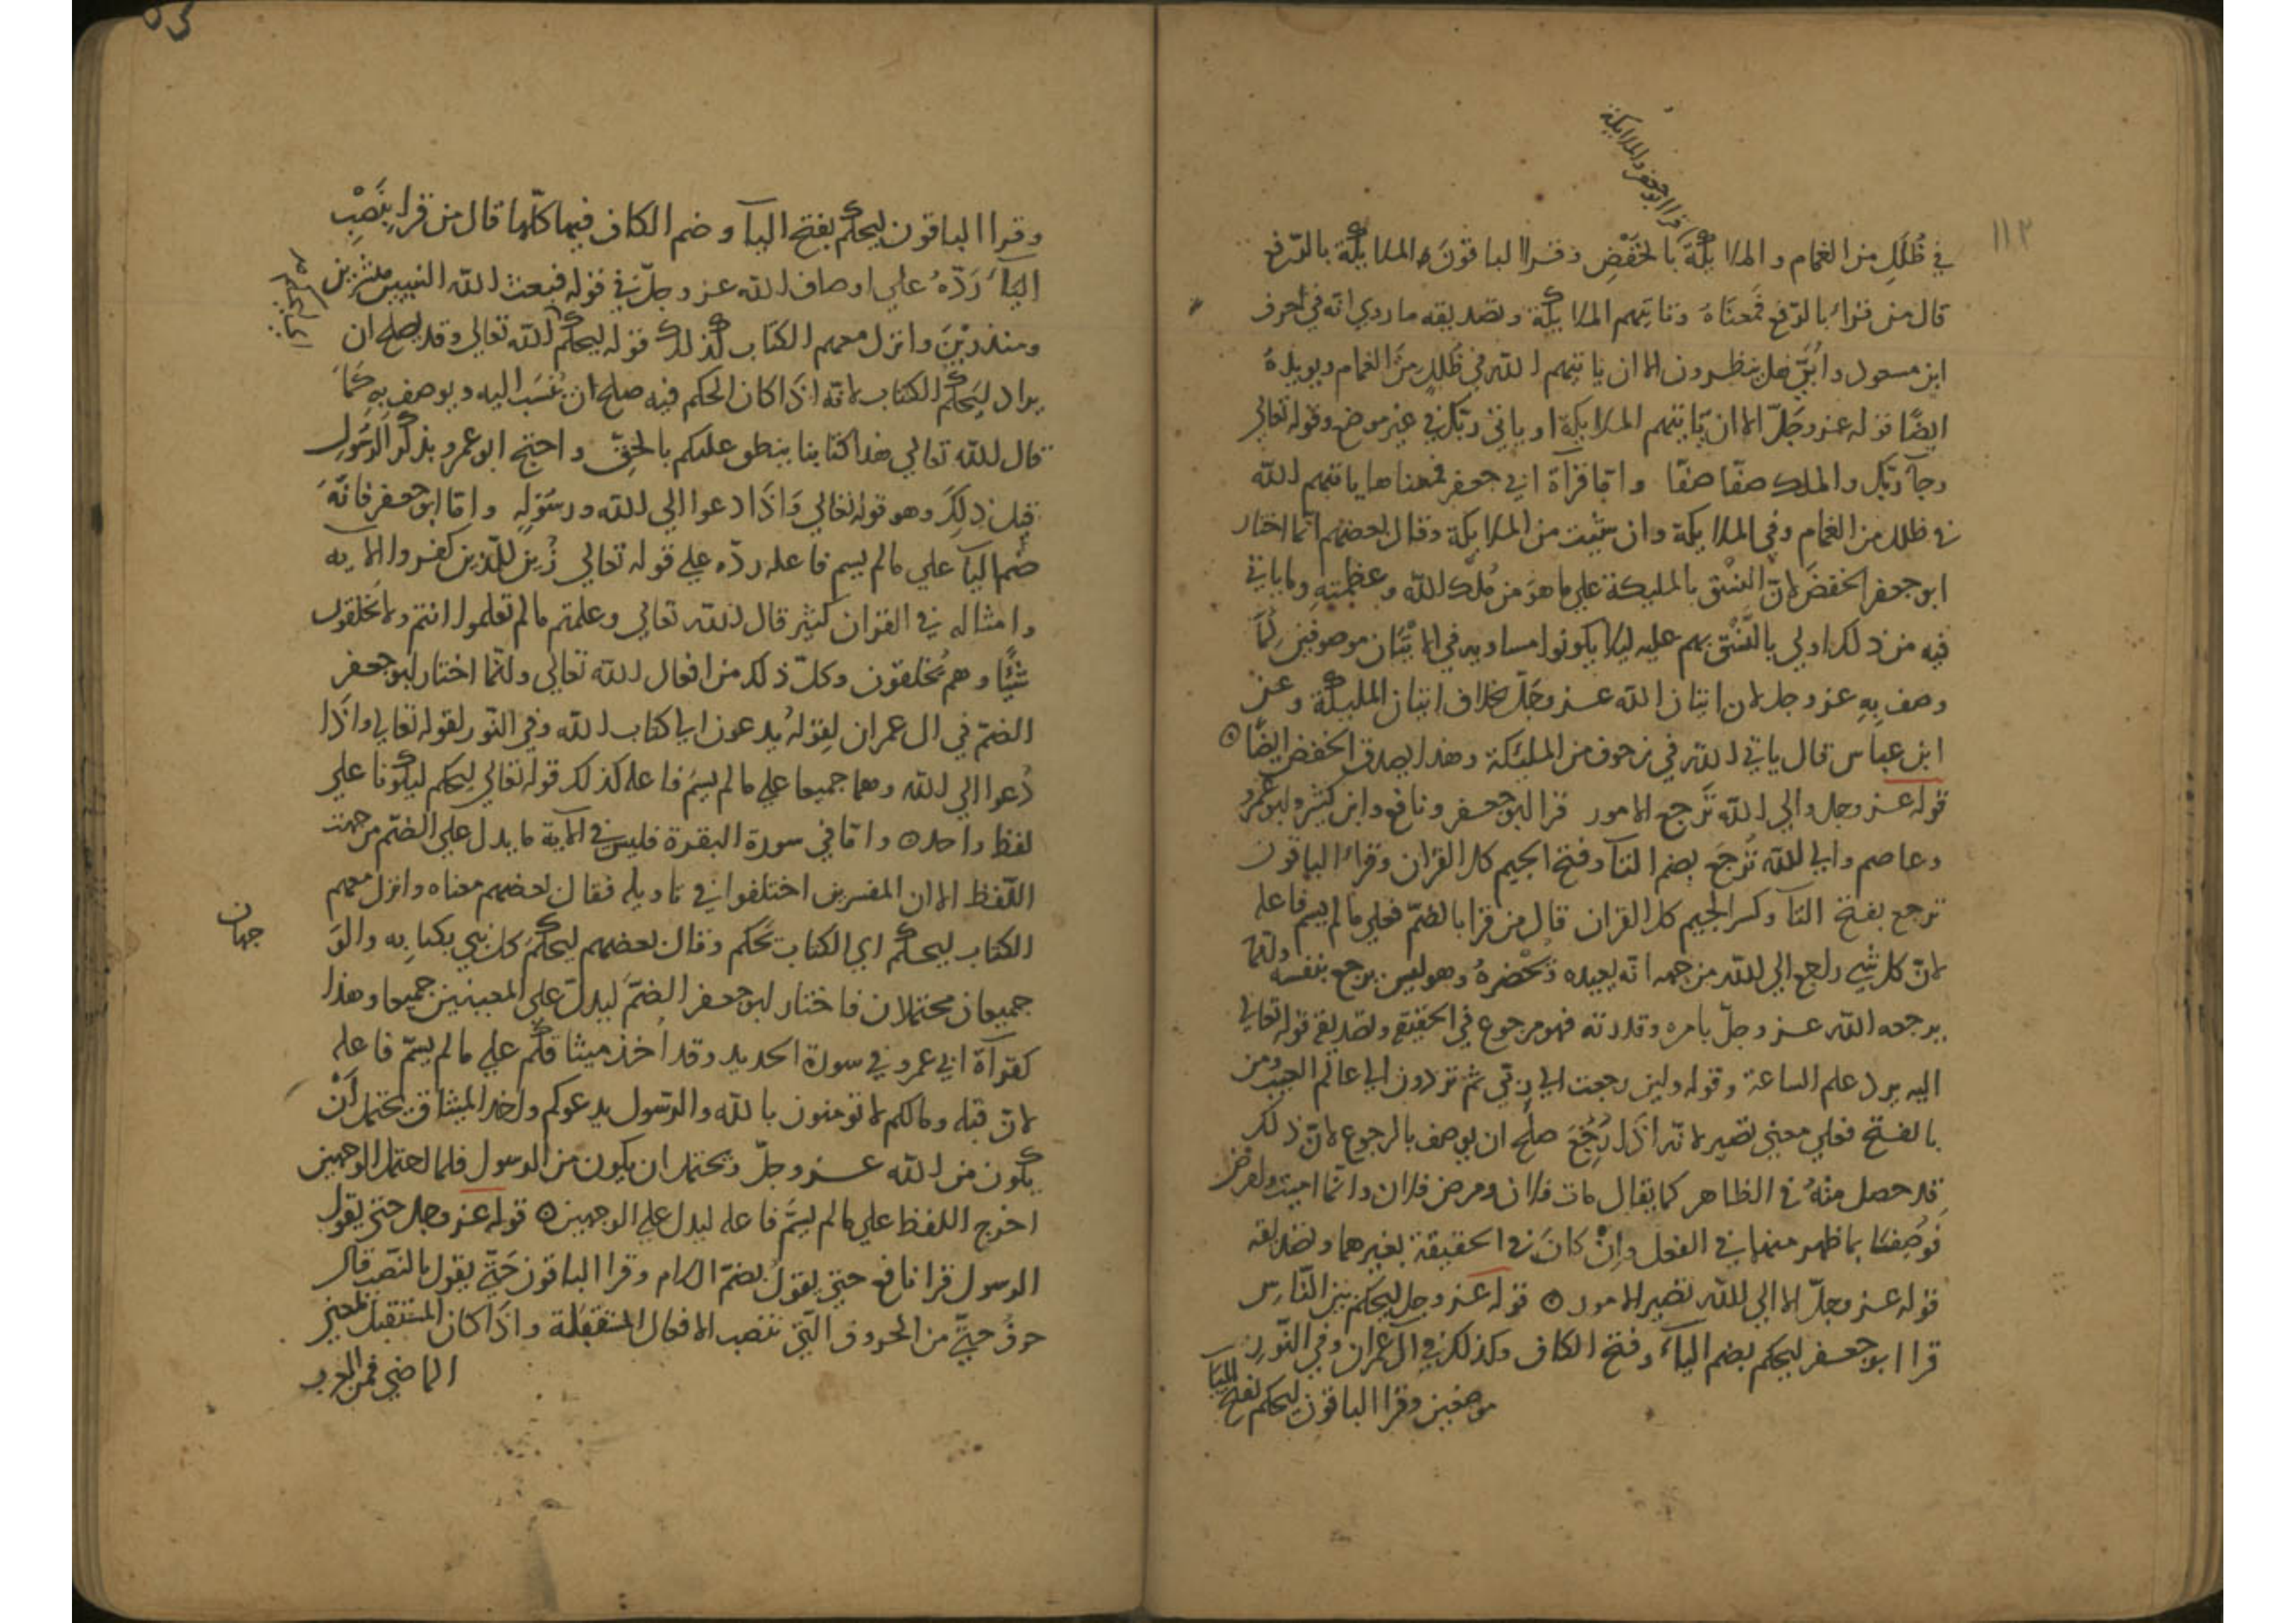 ١١٢
قرا ابو جعفر والملايكة
في ظُلَلٍ من الغمام والملايكةِ بالخَفْضِ وقرا الباقونَ والملايكة بالرّفع
قال من قراء بالرّفع فمعنَاهُ وتاتيهم الملايكة وتصديقه ما روي انه في احرف
ابن مسعود وابيّ هل ينظرون الا ان ياتيهم الله في ظُلَلٍ منَ الغمام ويويدهُ
ايضًا قوله عز وجَلّ الا ان تاتيهم الملايكة او ياتي ربّك في غير موضع وقوله تعالي
وجآ ربّك والملك صفّا صفّا واما قرآة ابي جعفر فمعناها ياتيهم الله
في ظلل من الغمام وفي الملايكة وان شيت من الملايكة وقال بعضهم انما اختار
ابو جعفر الخفضَ لانّ النسْق بالمليكة علي ما هوَ من مُلك الله وعظمتِهِ وما ياتي
فيه من ذلك اولي بالنَّسْق بهم عليه ليلا يكونوا مساويه في الاتيَان موصوفين بمَا
وصف بِهِ عز وجل لان اتيان الله عز وجَلّ بخلاف اتيان المليكة وعن
ابن عباس قال ياتي الله في زحوف من المليكة وهذا يصدق الخفض ايضًا ه
قوله عز وجل والي الله تَرجع الامور قرا ابو جعفر ونافع وابن كثير وابو عمرو
وعاصم والي الله تُرجَع بضم التآ وفتح الجيم كل القرآن وقراء الباقون
ترجع بفتح التآ وكسر الجيم كل القرآن قال من قرا بالضمّ فعلي ما لم يسم فاعله
لانّ كل شي راجع الي الله من جهه انه يعيده ويُحْضرهُ وهو ليس يرجع بنفسه وانما
يرجعه الله عز وجلّ بامره وقدرته فهو مرجوع في الحقيقة وتصديقه قوله تعالي
اليه يرد علم الساعة وقوله ولين رجعت الي ربّي ثم تردون الي عالم الغيب ومن
بالفتح فعلي معني تصير لانه اذَا رُجعَ صلح ان يوصف بالرجوع لانّ ذلك
قد حصل منهُ في الظاهر كما يقال مات فلان ومرض فلان وانّما اميت وامرض
فوُصِفَا بما ظهر منهما في الفعل واِنْ كانَ في الحقيقة بغيرهما وتصديقه
قوله عز وجلّ الا الي الله تصير الامور ه قوله عز وجل ليحكم بين النّاس
قرا ابو جعفر ليحكم بضم اليآء وفتح الكاف وكذلك في ال عمران وفي النّور
موضعين وقرا الباقون ليحكم بفتح اليآ
وقرا الباقون ليحكم بفتح اليآ وضم الكاف فيها كلّها قال من قرا بنَصْبِ
اليآء رَدّهُ علي اوصاف الله عز وجلّ في قوله فبعث الله النبيين مبشرين
ومنذرِيْنَ وانزل معهم الكتاب كذلك قوله ليحكم الله تعالي وقد يصلح ان
يراد ليَحكم الكتاب لانّه اذَا كان الحكم فيه صلح ان يُنسَب اليه ويوصف بِهِ كمَا
قال الله تعالي هذا كتابنا ينطق عليكم بالحَقّ واحتج ابو عمرو بذكر الرَّسُولِ
قبل ذلِكَ وهو قوله تعالي وَاذَا دعوا الي الله ورسُوله واما ابو جعفر فانّهَ
ضم اليآ علي ما لم يسم فاعله ردّه علي قوله تعالي زُين للّذين كفروا الايه
وامثاله في القران كثير قال الله تعالي وعلمتم ما لم تعلموا انتم ولا تخلقون
شيًا وهم يُخلقون وكلّ ذلك من افعال الله تعالي وانّما اختار ابو جعفر
الضمّ في ال عمران لقوله يُدعون الي كتاب الله وفي النّور لقوله تعالي واذَا
دُعوا الي الله وهما جميعا علي ما لم يسَم فاعله كذلك قوله تعالي ليحكم ليكونا علي
لفظ واحد ه واما في سورة البقرة فليس في الآية ما يدل علي الضّم من جهة
اللّفظ الا ان المفسرين اختلفوا في تاويله فقال بعضهم معناه وانزل معهم
الكتاب ليحكم اي الكتاب يَحكم وقال بعضهم ليحكمَ كل نبي بكتابِه
جهان
جميعا محتملان فاختار ابو جعفر الضمّ ليدلّ علي المعنيين جميعا وهذا
كقرآة ابي عمرو في سورة الحديد وقد اُخذ ميثاقكم علي ما لم يسمّ فاعله
لانّ قبله ومالكم لا تومنون بالله والرسول يدعوكم واخذ الميثاق يحتمل اَنْ
يكون من الله عز وجلّ ويحتمل ان يكون من الرسول فلما احتمل الوجهين
اخرج اللفظ علي ما لم يسَمَّ فاعله ليدل علي الوجهين ه قوله عز وجل حتي يقول
الرسول قرا نافع حتي يقولُ بضمّ اللام وقرا الباقون حَتّي يقول بالنّصب قال
حروف حتّي من الحروف الّتي تنصب الافعال المستقبلة واذَا كان المستقبل بمعني
الماضي فمن العرب